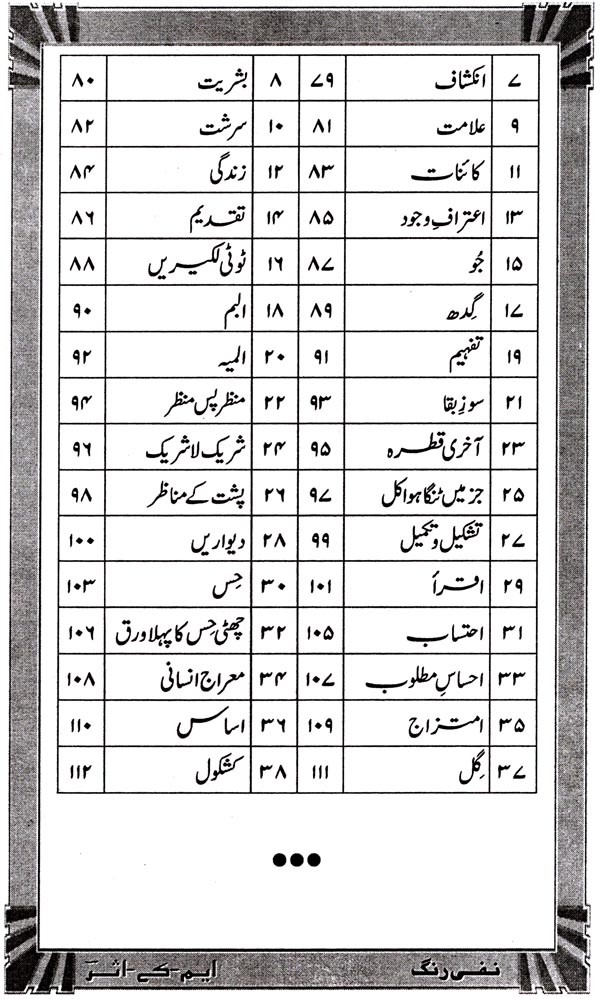 ۷ انکشاف ۷۹ ۸ بشریت ۸۰
۹ علامت ۸۱ ۱۰ سرشت ۸۲
۱۱ کائنات ۸۳ ۱۲ زندگی ۸۴
۱۳ اعترافِ وجود ۸۵ ۱۴ تقدیم ۸۶
۱۵ جُو ۸۷ ۱۶ ٹوٹی لکیریں ۸۸
۱۷ گِدھ ۸۹ ۱۸ البم ۹۰
۱۹ تفہیم ۹۱ ۲۰ المیہ ۹۲
۲۱ سوزِ بقا ۹۳ ۲۲ منظر پس منظر ۹۴
۲۳ آخری قطرہ ۹۵ ۲۴ شریک لاشریک ۹۶
۲۵ جز میں ٹنگا ہوا کل ۹۷ ۲۶ پشت کے مناظر ۹۸
۲۷ تشکیل و تکمیل ۹۹ ۲۸ دیواریں ۱۰۰
۲۹ اقرأ ۱۰۱ ۳۰ حِس ۱۰۳
۳۱ احتساب ۱۰۵ ۳۲ چھٹی حِس کا پہلا ورق ۱۰۶
۳۳ احساسِ مطلوب ۱۰۷ ۳۴ معراج انسانی ۱۰۸
۳۵ امتزاج ۱۰۹ ۳۶ اساس ۱۱۰
۳۷ گِل ۱۱۱ ۳۸ کشکول ۱۱۲
نفی رنگ ایم-کے-اثرؔ